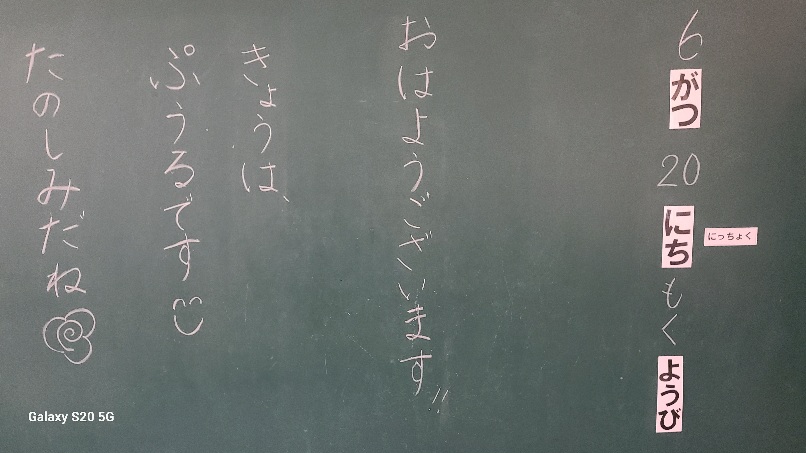 6がつ20にちもくようび
にっちょく
おはようございます!!
きょうは、
ぷうるです
たのしみだね
Galaxy S20 5G